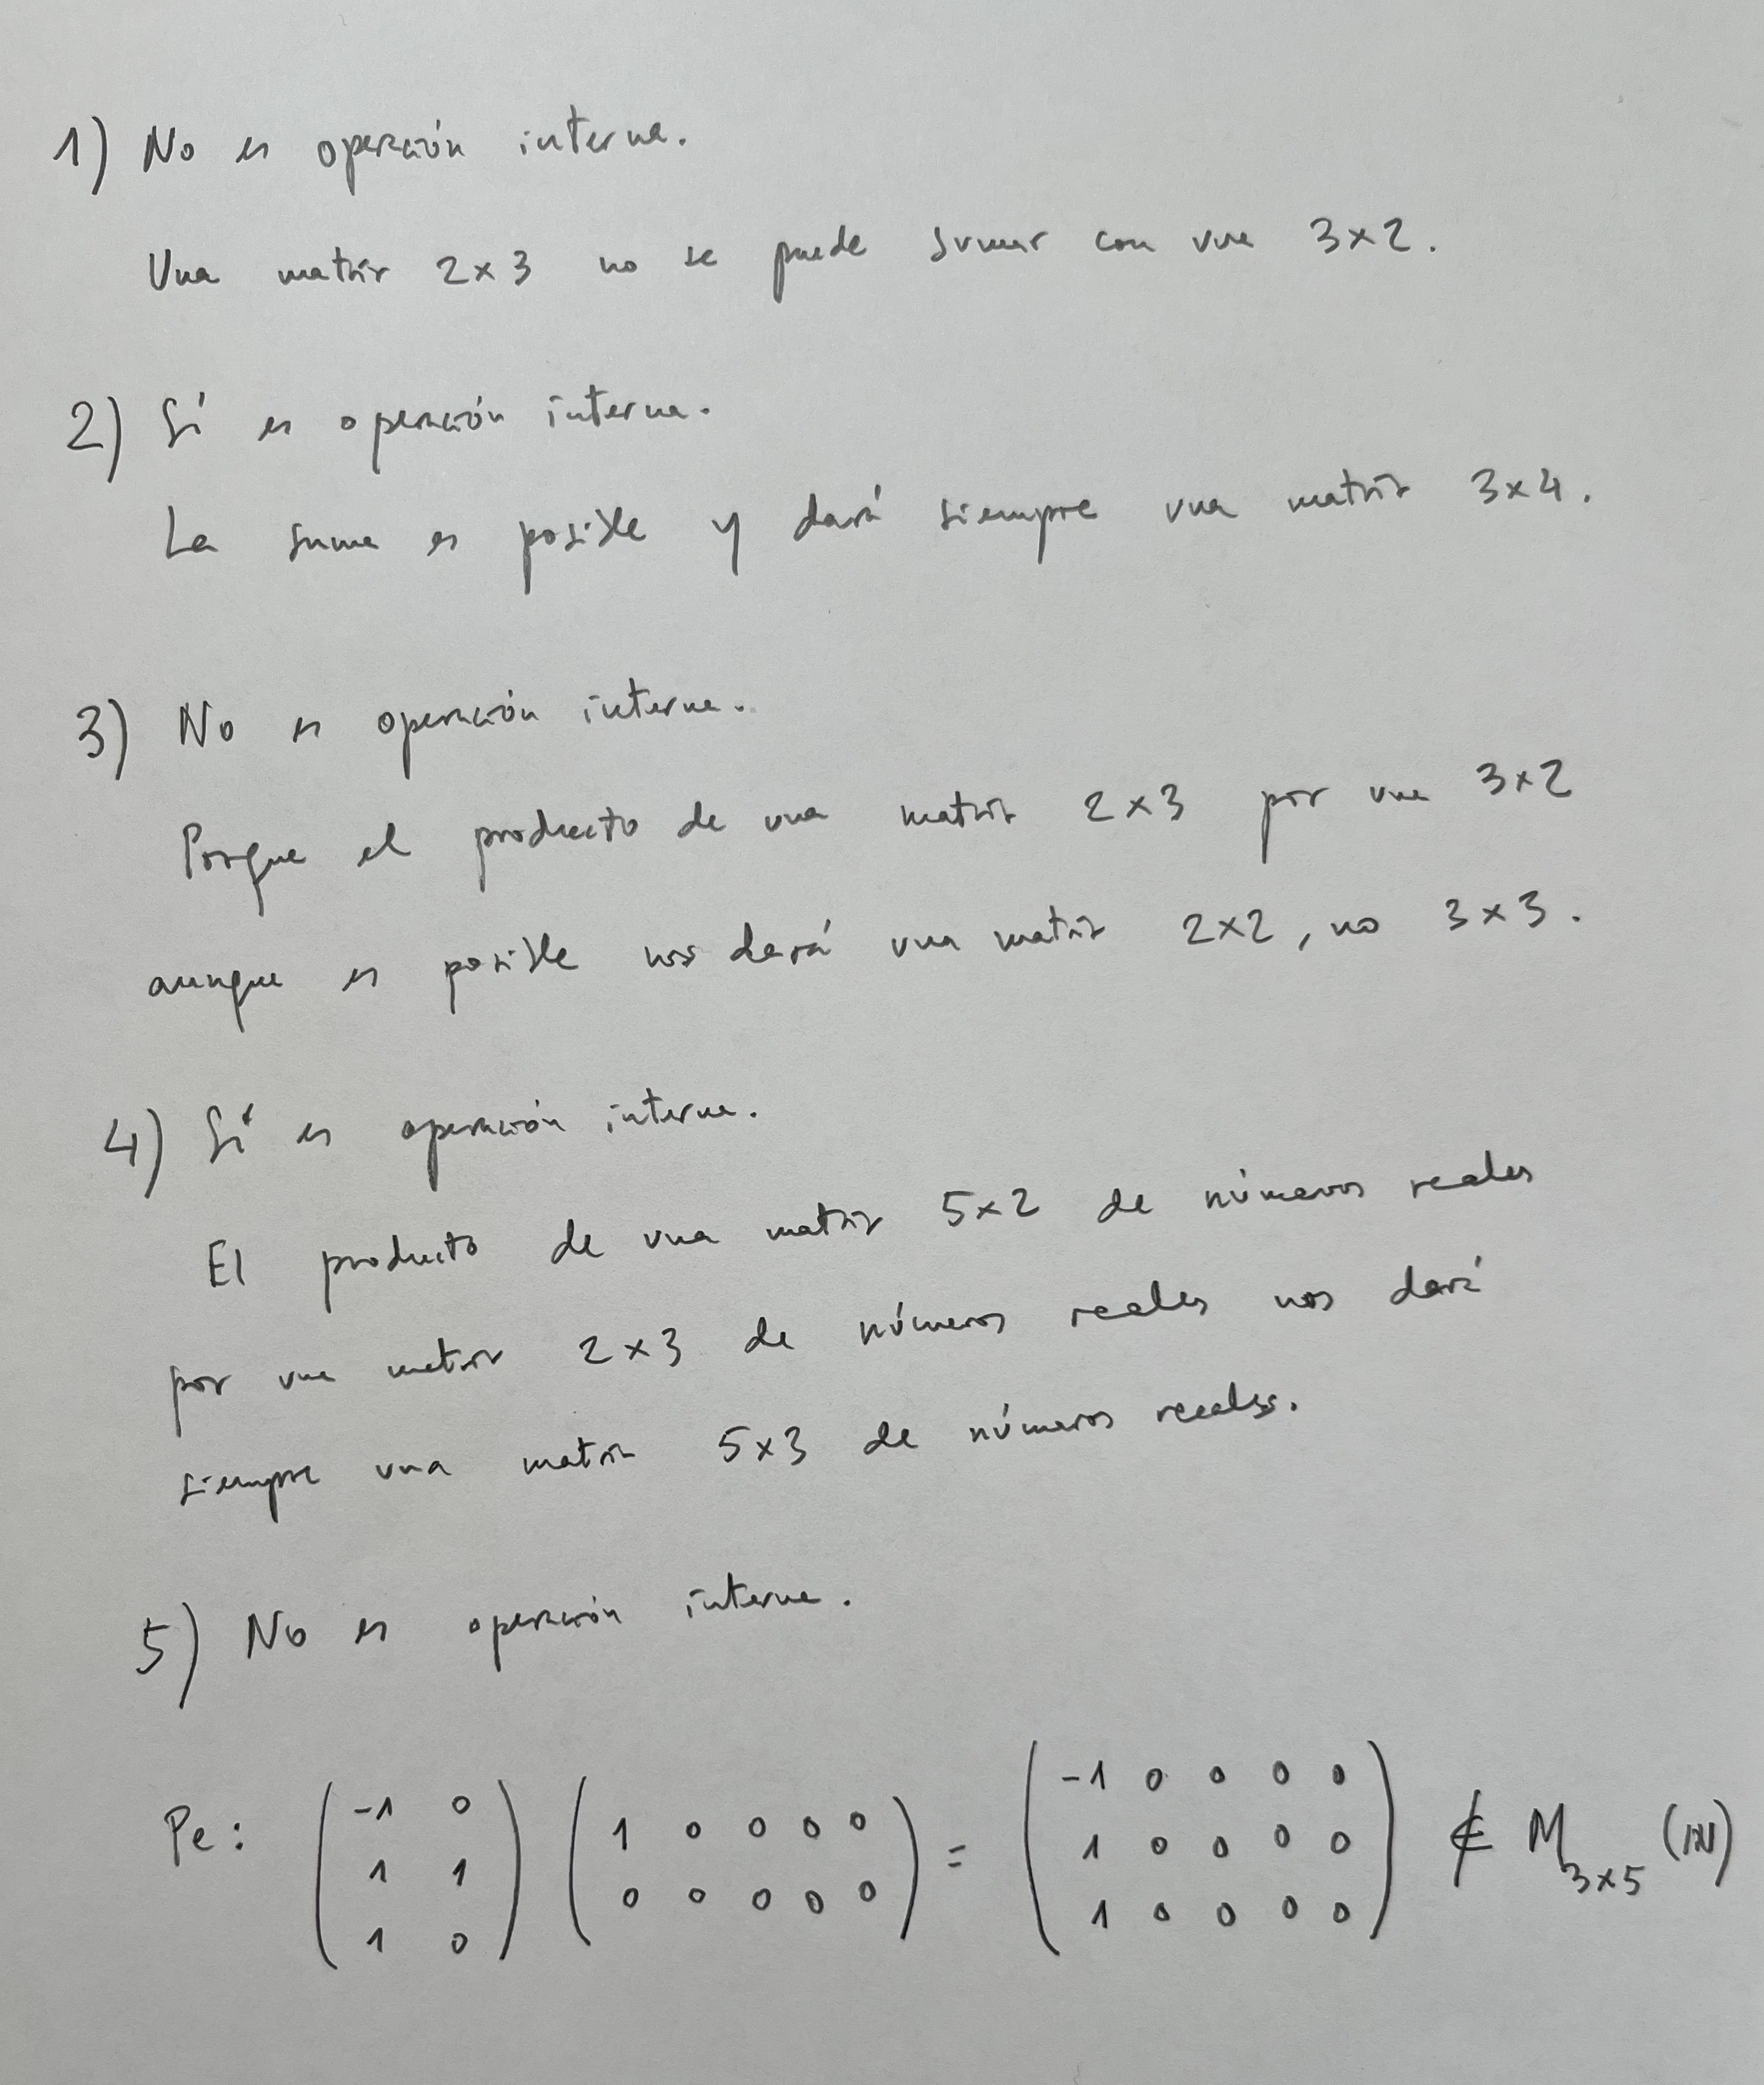 1) No es operación interna.
Una matriz 2x3 no se puede sumar con una 3x2.
2) Sí es operación interna.
La suma es posible y dará siempre una matriz 3x4.
3) No es operación interna.
Porque el producto de una matriz 2x3 por una 3x2
aunque es posible nos dará una matriz 2x2, no 3x3.
4) Sí es operación interna.
El producto de una matriz 5x2 de números reales
por una matriz 2x3 de números reales nos dará
siempre una matriz 5x3 de números reales.
5) No es operación interna.
Pe: (-1 0; 1 1; 1 0) (1 0 0 0 0; 0 0 0 0 0) = (-1 0 0 0 0; 1 0 0 0 0; 1 0 0 0 0) ∉ M3x5 (ℕ)